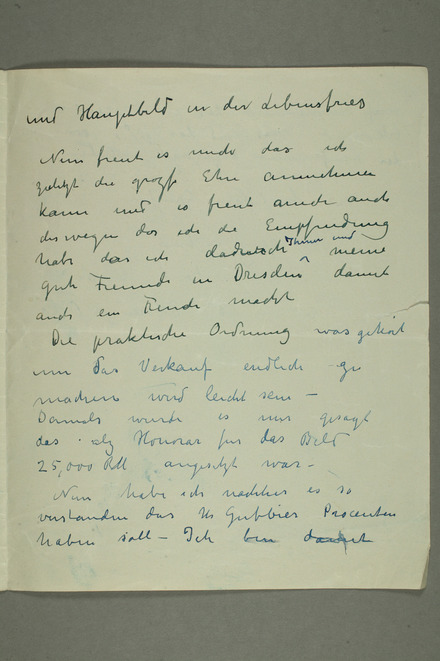 und Hauptbild in der Lebensfries
Nun freut es mich das ich
die große Ehre annehmen
kann und es freut auch
deswegen das ich die Empfindung
habe das ich dadurch Ihnen und meine
gute Freunde in Dresden damit
auch ein Freude macht
Die praktische Ordnung was gehört
um das Verkauf endlich zu
machen wird leicht sein –
Damals wurde es mir gesagt
das als Honorar für das Bild
25,000 RM angesetzt war –
Nun habe ich nachher es so
verstanden das Hr Gubbier Procenten
haben soll – Ich bin